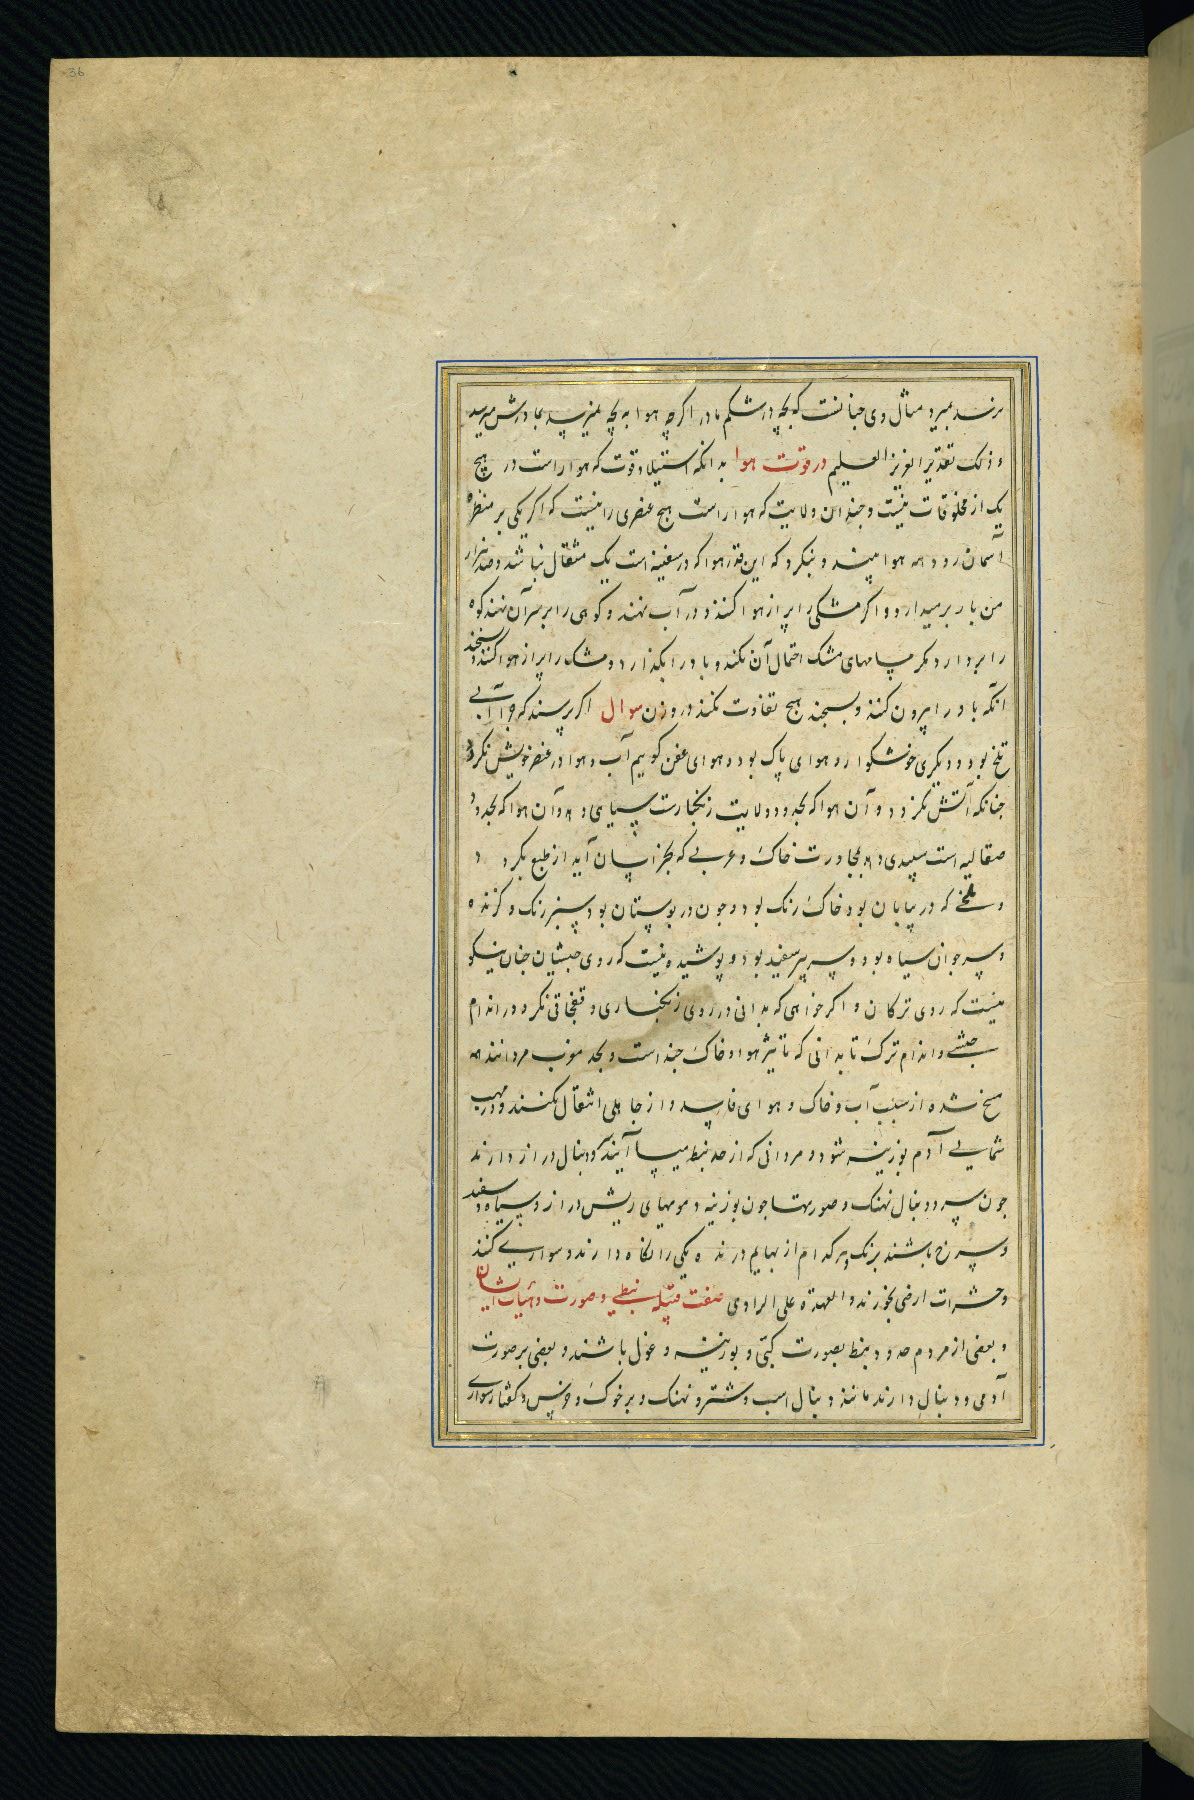 36
برند بمیرد مثال وی چنانست که بچه در شکم مادر اکرچه هوا به بچه نمیرسد بمادرش میرسد
و ذلک تقدیر العزیز العلیم در قوت هوا بدانکه استیلا و قوت که هوا راست در هیچ
یک از مخلوقات نیست و چندان ولایت که هوا راست هیچ عنصری را نیست که اکر یکی بر منظره
آسمان رود همه هوا بیند و بنکرد که این قدر هوا که در سفینه است یک مثقال نباشد و صد هزار
من بار برمیدارد و اکر مشکی را پر از هوا کنند و در آب نهند و کوهی را بر سر آن نهند کوه
را بردارد مکر مسامهای مشک احتمال آن نکند و باد را بکذارد و مشک را پر از هوا کنند و بسنجند
آنکه باد را بیرون کنند و بسنجند هیچ تفاوت نکند در وزن سوال اکر پرسند که چرا آبی
تلخ بود و دیکری خوشکوار و هوای پاک بود و هوای عفن کوییم آب و هوا در عنصر خویش نکردد
چنانکه آتش نکردد و آن هوا که بحدود ولایت زنکبارست سیاهی دهد و آن هوا که بحدود
صقالیه است سپیدی دهد بمجاورت خاک و عربی که بخراسان آید از طبع بکردد
و ملخی که در بیابان بود خاک رنک بود و چون در بوستان بود سبز رنک و کزنده
و سر جوان سیاه بود و سر پیر سفید بود و پوشیده نیست که روی حبشیان چنان نیکو
نیست که روی ترکان و اکر خواهی که بدانی در روی زنکباری و قفجاقی نکر و در اندام
حبشی و اندام ترک تا بدانی که تاثیر هوا و خاک چند است و بحد مغرب مردانند همه
مسخ شده از سبب آب و خاک و هوای فاسد و از جاهلی انتقال نکنند و در مهب
شمالی آدم بوزینه شود و مردانی که از حد نبط میآیند دنبال دراز دارند
چون سر و دنبال نهنک و صورتها چون بوزینه و مویهای ریش دراز و سیاه و سفید
و سرخ باشند برنک و هر کدام از بهایم درنده یکی را نکاه دارند و سواری کنند
و حشرات ارضی بخورند و العهدة علی الراوی صفت قبیله نبطی و صورت و هیات ایشان
و بعضی از مردم حدود نبط بصورت کپی و بوزینه و غول باشند و بعضی بر صورت
آدمی و دنبال دارند مانند دنبال اسب و شتر و نهنک و بر خوک و خرس و کفتار سواری